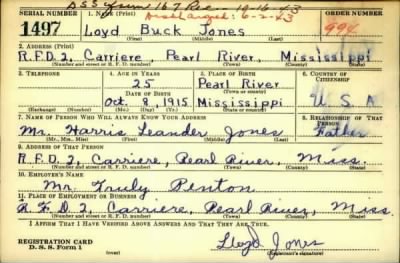 DSS Form 167 Rec. 10-16-43
Discharged: 6-2-43
SERIAL NUMBER 1. NAME (Print) ORDER NUMBER
1497 Loyd Buck Jones 994
(First) (Middle) (Last)
2. ADDRESS (Print)
R.F.D. 2, Carriere, Pearl River, Mississippi
(Number and street or R. F. D. number) (Town) (County) (State)
3. TELEPHONE 4. AGE IN YEARS 5. PLACE OF BIRTH 6. COUNTRY OF CITIZENSHIP
25 Pearl River
(Town or county)
DATE OF BIRTH
Oct. 8, 1915 Mississippi U. S. A
(Exchange) (Number) (Mo.) (Day) (Yr.) (State or country)
7. NAME OF PERSON WHO WILL ALWAYS KNOW YOUR ADDRESS 8. RELATIONSHIP OF THAT PERSON
Mr. Harris Leander Jones Father
(Mr., Mrs., Miss) (First) (Middle) (Last)
9. ADDRESS OF THAT PERSON
R.F.D. 2, Carriere, Pearl River, Miss.
(Number and street or R. F. D. number) (Town) (County) (State)
10. EMPLOYER'S NAME
Mr. Truly Penton
11. PLACE OF EMPLOYMENT OR BUSINESS
R.F.D 2, Carriere, Pearl River, Miss.
(Number and street or R. F. D. number) (Town) (County) (State)
I AFFIRM THAT I HAVE VERIFIED ABOVE ANSWERS AND THAT THEY ARE TRUE.
REGISTRATION CARD
D. S. S. Form 1 (over) Lloyd Jones
(Registrant's signature)